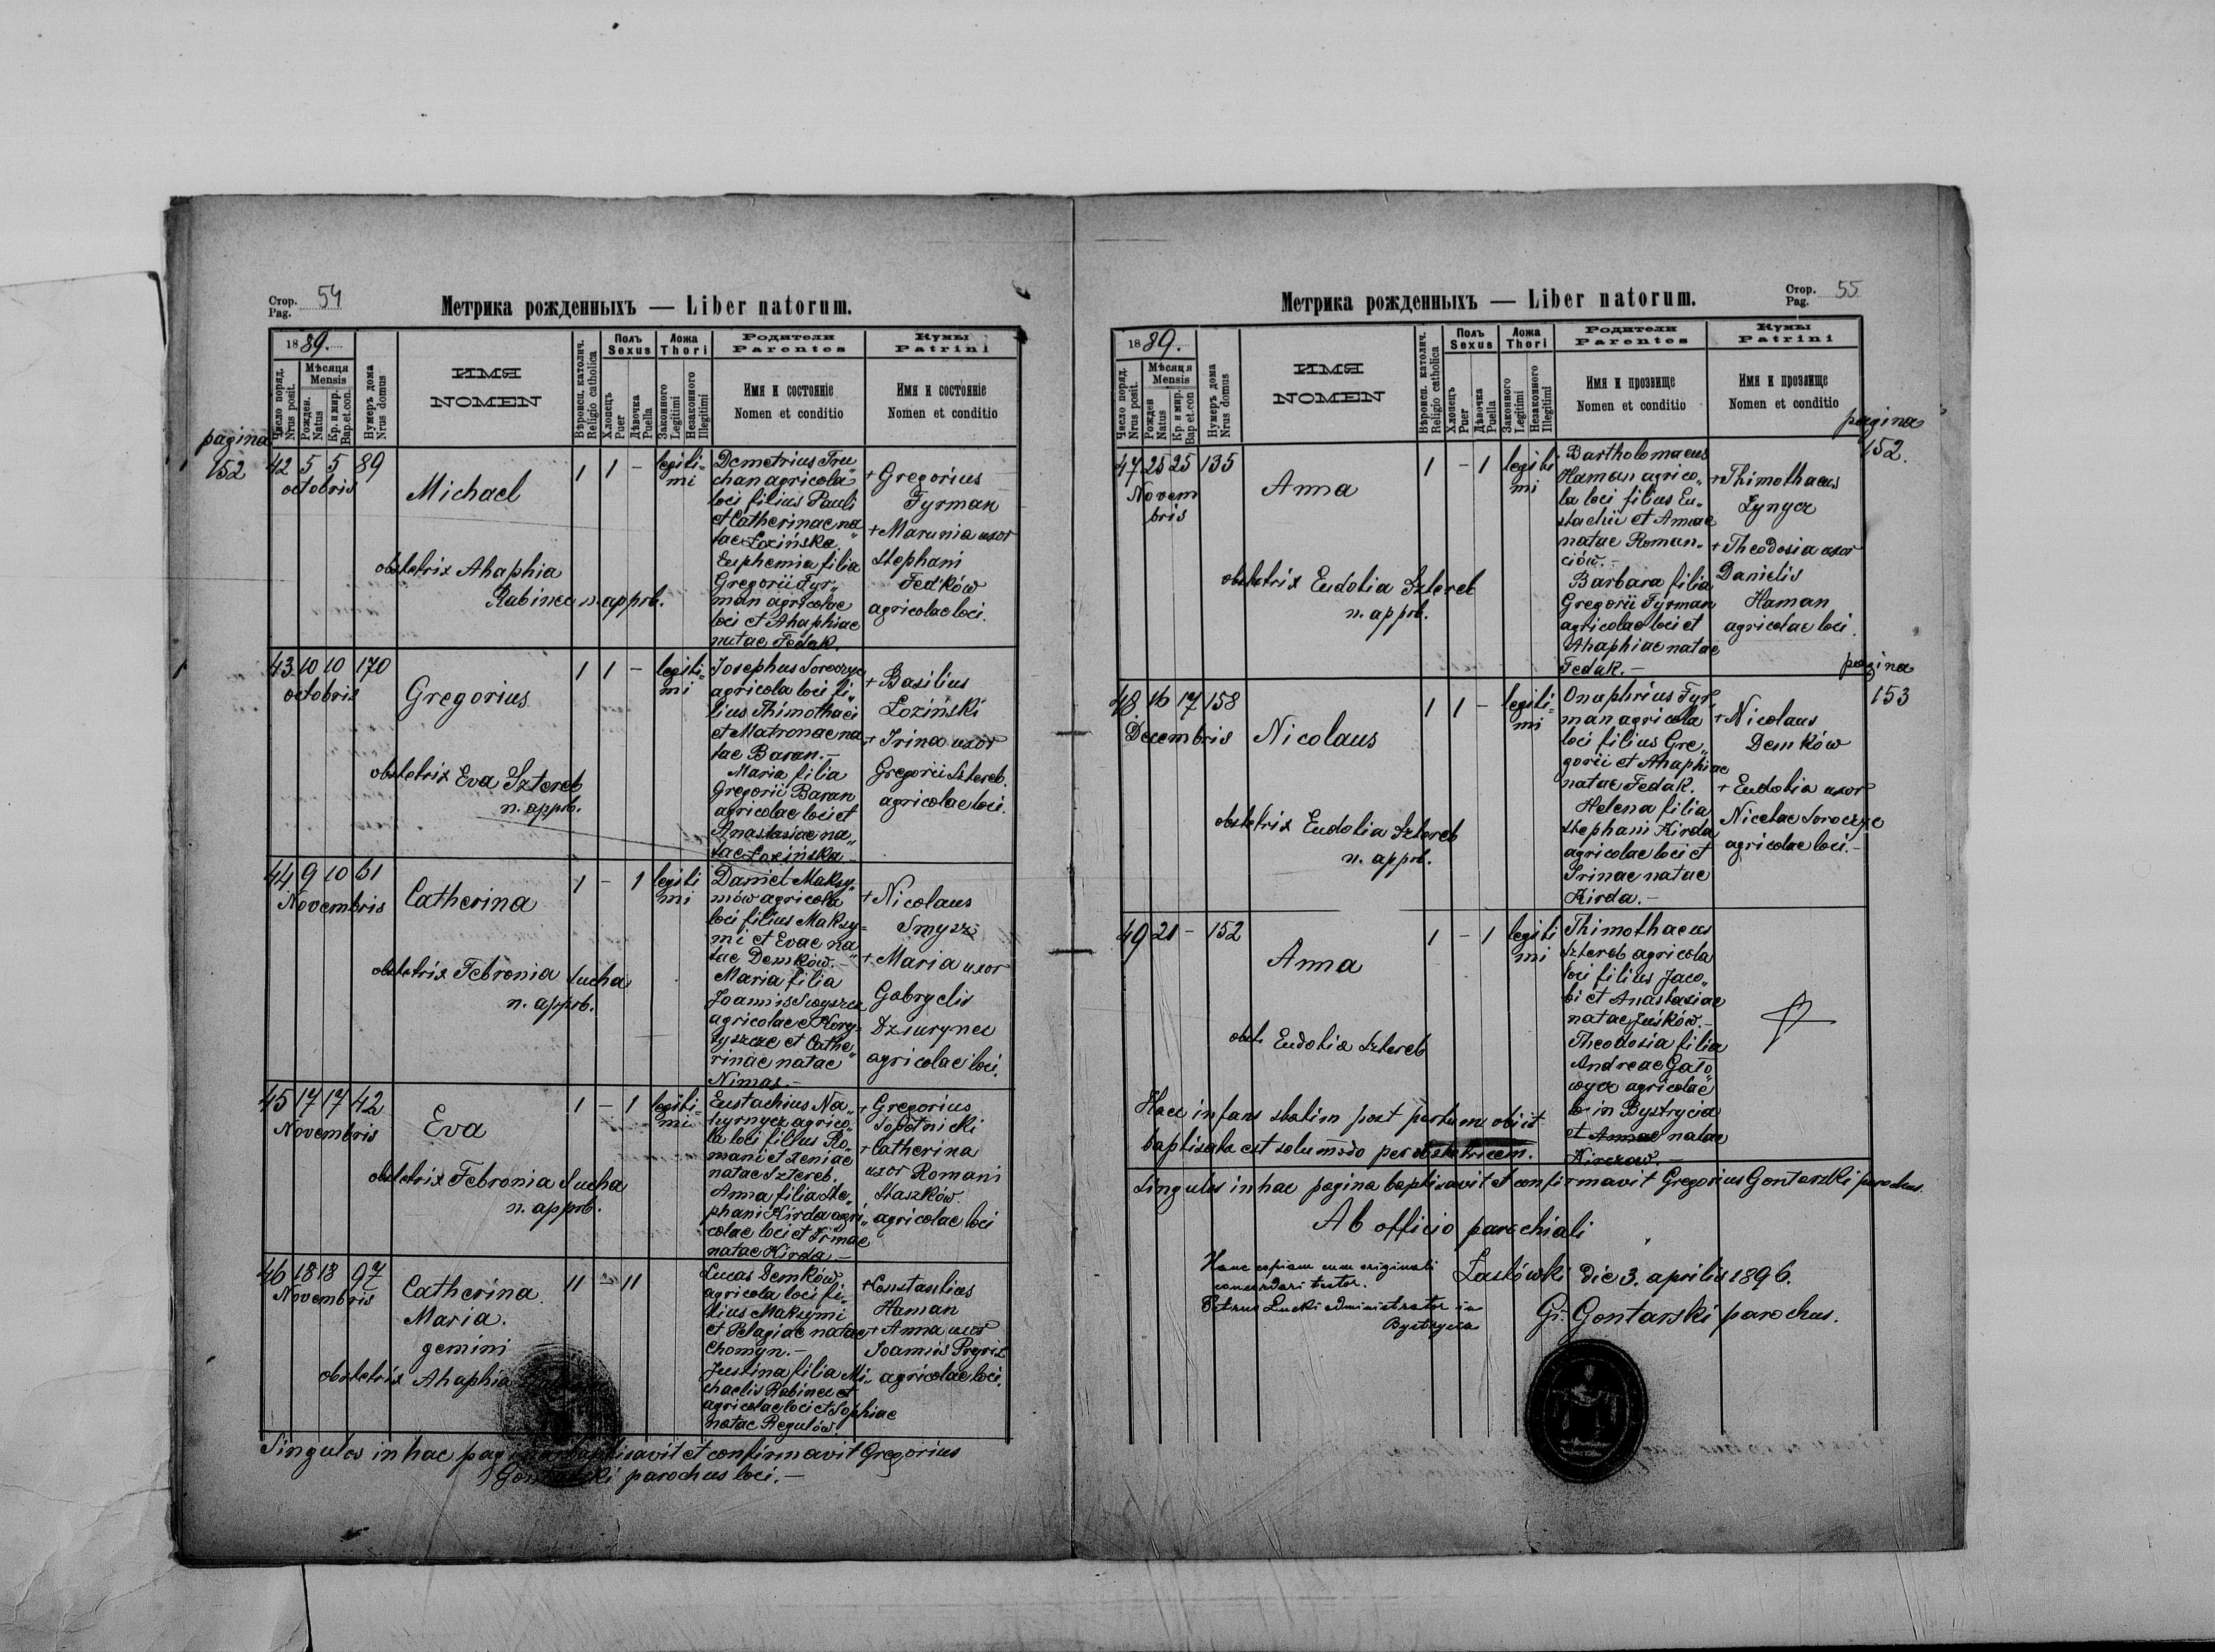 Стор. Pag. 54
Метрика рожденныхъ — Liber natorum.
1889.
Число поряд. Nrus posit.
Мѣсяця Mensis
Рожден. Natus
Кр. и мир. Bap. et. con.
Нумеръ дома Nrus domus
ИМЯ
NOMEN
Вѣроисп. католич. Religio catholica
Полъ Sexus
Хлопецъ Puer
Дѣвочка Puella
Ложа Thori
Законного Legitimi
Незаконного Illegitimi
Родители
Parentes
Имя и состояніе
Nomen et conditio
Кумы
Patrini
Имя и состояніе
Nomen et conditio
pagina
152
42 5 5 89
octobris
Michael
obstetrix Ahaphia
Rabinec n. approb.
1 1 -
legiti-
mi
Demetrius Tru„
chan agricola
loci filius Pauli
et Catherinae na„
tae Łozińska
Euphemia filia
Gregorii Fyr„
man agricolae
loci et Ahaphiae
natae Fedak.
+ Gregorius
Fyrman
+ Marunia uxor
Stephani
Fedków
agricolae loci.
43 10 10 170
octobris
Gregorius
obstetrix Eva Sztereb
n. approb.
1 1 -
legiti-
mi
Josephus Soroczyc
agricola loci fi„
lius Thimothaei
et Matronae na„
tae Baran.-
Maria filia
Gregorii Baran
agricolae loci et
Anastasiae na„
tae Łozińska
+ Basilius
Łoziński
+ Irina uxor
Gregorii Sztereb
agricolae loci.
44 9 10 61
Novembris
Catherina
obstetrix Febronia Sucha
n. approb.
1 - 1
legiti
mi
Daniel Maksy„
mów agricola
loci filius Maksy-
mi et Evae na„
tae Demków.-
Maria filia
Joannis
agricolae e Kory-
tyszcze et Cathe„
rinae natae
Nimas.-
+ Nicolaus
Smysz
+ Maria uxor
Gabryelis
Dziurynec
agricolae loci.
45 17 17 42
Novembris
Eva
obstetrix Febronia Sucha
n. approb.
1 - 1
legiti-
mi
Eustachius Na„
hyrnycz agrico„
la loci filius Ro„
mani et Xeniae
natae Sztereb.
Anna filia Ste„
phani Kirda agri„
colae loci et Irinae
natae Kirda.-
+ Gregorius
Topolnicki
+ Catherina
uxor Romani
Staszków
agricolae loci
46 18 18 97
Novembris
Catherina
Maria.
gemini
obstetrix Ahaphia
11 - 11
Lucas Demków
agricola loci fi„
lius Maksymi
et Pelagiae natae
Chomyn.-
Justina filia Mi„
chaelis Rabinec et
agricolae loci et Sophiae
natae Regulów
+ Constantius
Haman
+ Anna uxor
Joannis Pryriz
agricolae loci.
Singulos in hac pagina baptisavit et confirmavit Gregorius
Gontarski parochus loci.-
Стор. Pag. 55
Метрика рожденныхъ — Liber natorum.
1889.
Число поряд. Nrus posit.
Мѣсяця Mensis
Рожден Natus
Кр. и мир. Bap et con
Нумеръ дома Nrus domus
ИМЯ
NOMEN
Вѣроисп. католич. Religio catholica
Полъ Sexus
Хлопецъ Puer
Дѣвочка Puella
Ложа Thori
Законного Legitimi
Незаконного Illegitimi
Родители
Parentes
Имя и прозвище
Nomen et conditio
Кумы
Patrini
Имя и прозвище
Nomen et conditio
pagina
152.
47 25 25 135
Novem
bris
Anna
obstetrix Eudokia Sztereb
n. approb.
1 - 1
legiti
mi
Bartholomaeus
Haman agrico„
la loci filius Eu„
stachii et Annae
natae Roman„
ciów.-
Barbara filia
Gregorii Fyrman
agricolae loci et
Ahaphiae natae
Fedak.-
+ Thimothaeus
Łynycz
+ Theodosia uxor
Danielis
Haman
agricolae loci.
pagina
153
48 16 17 158
Decembris
Nicolaus
obstetrix Eudokia Sztereb
n. approb.
1 1 -
legiti-
mi
Onuphrius Fyr„
man agricola
loci filius Gre„
gorii et Ahaphiae
natae Fedak.
Helena filia
Stephani Kirda
agricolae loci et
Irinae natae
Kirda.-
+ Nicolaus
Demków
+ Eudokia uxor
Nicetae Soroczyc
agricolae loci.-
49 21 - 152
Anna
obst. Eudokia Sztereb
1 - 1
legiti
mi
Thimothaeus
Sztereb agricola
loci filius Jaco„
bi et Anastasiae
natae Juśków.-
Theodosia filia
Andreae Gało„
wycz agricolae
in Bystrycia
et Annae natae
Kirczow.-
Haec infans statim post partum obiit
baptisata est solummodo per obstetricem.
Singulos in hac pagina baptisavit et confirmavit Gregorius Gontarski parochus.
Ab officio parochiali
Hanc copiam cum originali
concordari testor.
Petrus Łucki Administrator in
Bystrycia
Łastówki die 3. aprilis 1896.
Gr. Gontarski parochus.